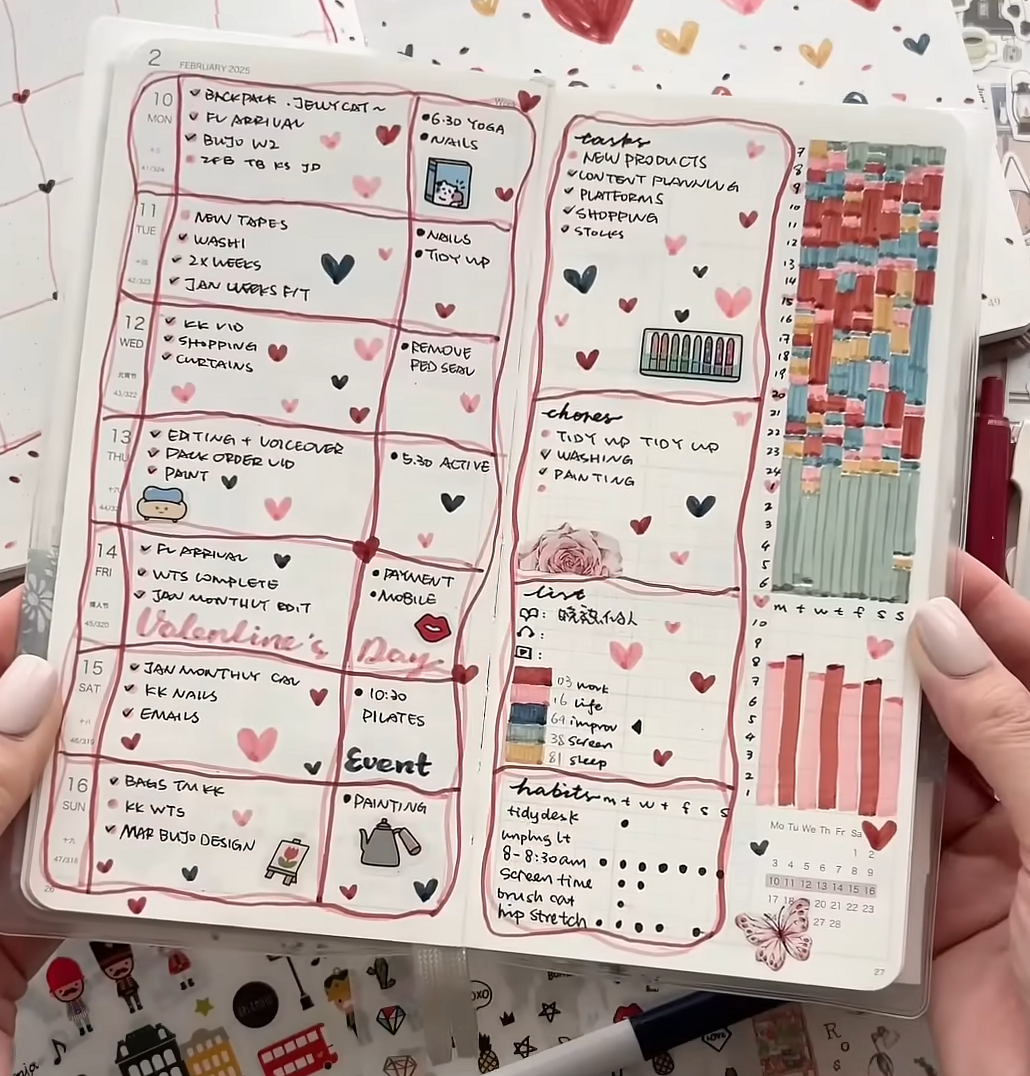 2 FEBRUARY 2025
10
MON
41/324
BACKPACK . JELLYCAT~
FL ARRIVAL
BUJO W2
2FB TB KS JD
•6.30 YOGA
•NAILS
11
TUE
42/323
NEW TAPES
WASHI
2X WEEKS
JAN WEEKS F/T
•NAILS
•TIDY UP
12
WED
元宵节
43/322
KK VID
SHOPPING
CURTAINS
•REMOVE
RED SEAL
13
THU
EDITING + VOICEOVER
PACK ORDER VID
PAINT
•5.30 ACTIVE
14
FRI
情人节
45/320
FL ARRIVAL
WTS COMPLETE
JAN MONTHLY EDIT
Valentine's Day
•PAYMENT
•MOBILE
15
SAT
十八
46/319
JAN MONTHLY CAL
KK NAILS
EMAILS
• 10:30
PILATES
Event
16
SUN
十九
47/318
BAGS TM KK
KK WTS
MAR BUJO DESIGN
•PAINTING
26
tasks
NEW PRODUCTS
CONTENT PLANNING
PLATFORMS
SHOPPING
STOCKS
chores
TIDY UP TIDY UP
WASHING
PAINTING
list
03 work
16 life
69 improv
38 screen
81 sleep
habits m t w t f s s
tidy desk
unplug lt
8-8:30am
screen time
brush cat
hip stretch
7
8
9
10
11
12
13
14
15
16
17
18
19
20
21
22
23
24
1
2
3
4
5
6
m t w t f s s
10
9
8
7
6
5
4
3
2
1
Mo Tu We Th Fr Sa
1 2
3 4 5 6 7 8 9
10 11 12 13 14 15 16
17 18 20 21 22 23
27 28
27